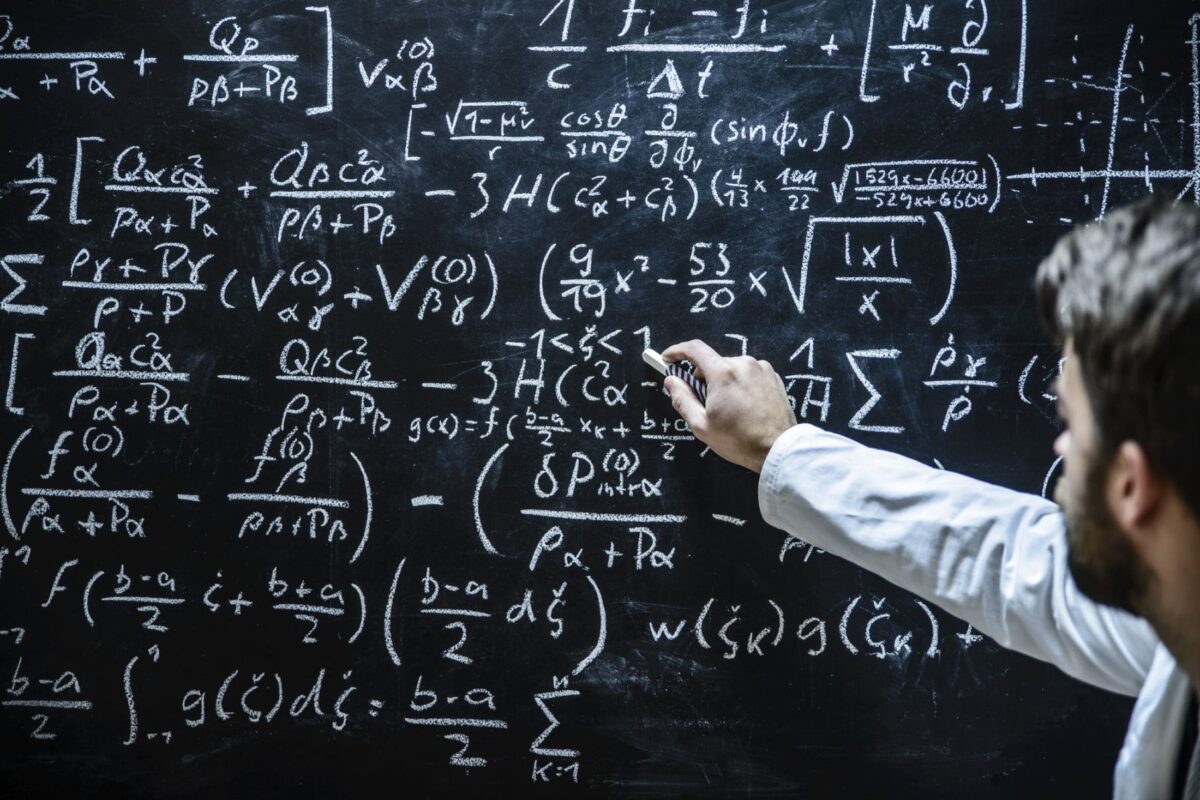 Qα / α + Pα + Qβ / ρβ + Pβ ] Vαβ^(0) 1/c f_i - f_i / Δt + [ M/r² ∂/∂r ]
[ - √(1-μ²) / r cosθ/sinθ ∂/∂φ_v (sinφ_v f)
1/2 [ Qα cα² / ρα + Pα + Qβ cβ² / ρβ + Pβ - 3H(cα² + cβ²) (4/13 x 109/22 √(1529x-66001 / -529x+6600))
Σ ργ + Pγ / ρ + P (Vαγ^(0) + Vβγ^(0)) (9/19 x² - 53/20 x √(|x| / x))
-1<ξ<1
[ Qα cα² / ρα + Pα - Qβ cβ² / ρβ + Pβ - 3H(cα 1/H Σ ργ / ρ (
g(x)=f(b-a/2 x_k + b+a/2
( fα^(0) / ρα + Pα - fβ^(0) / ρβ + Pβ ) - ( δP_intrα^(0) / ρα + Pα -
f( b-a/2 ξ + b+a/2 ) ( b-a/2 dξ ) w(ξ_k)g(ξ_k) +
b-a/2 ∫_-1^1 g(ξ)dξ = b-a/2 Σ_k=1^n